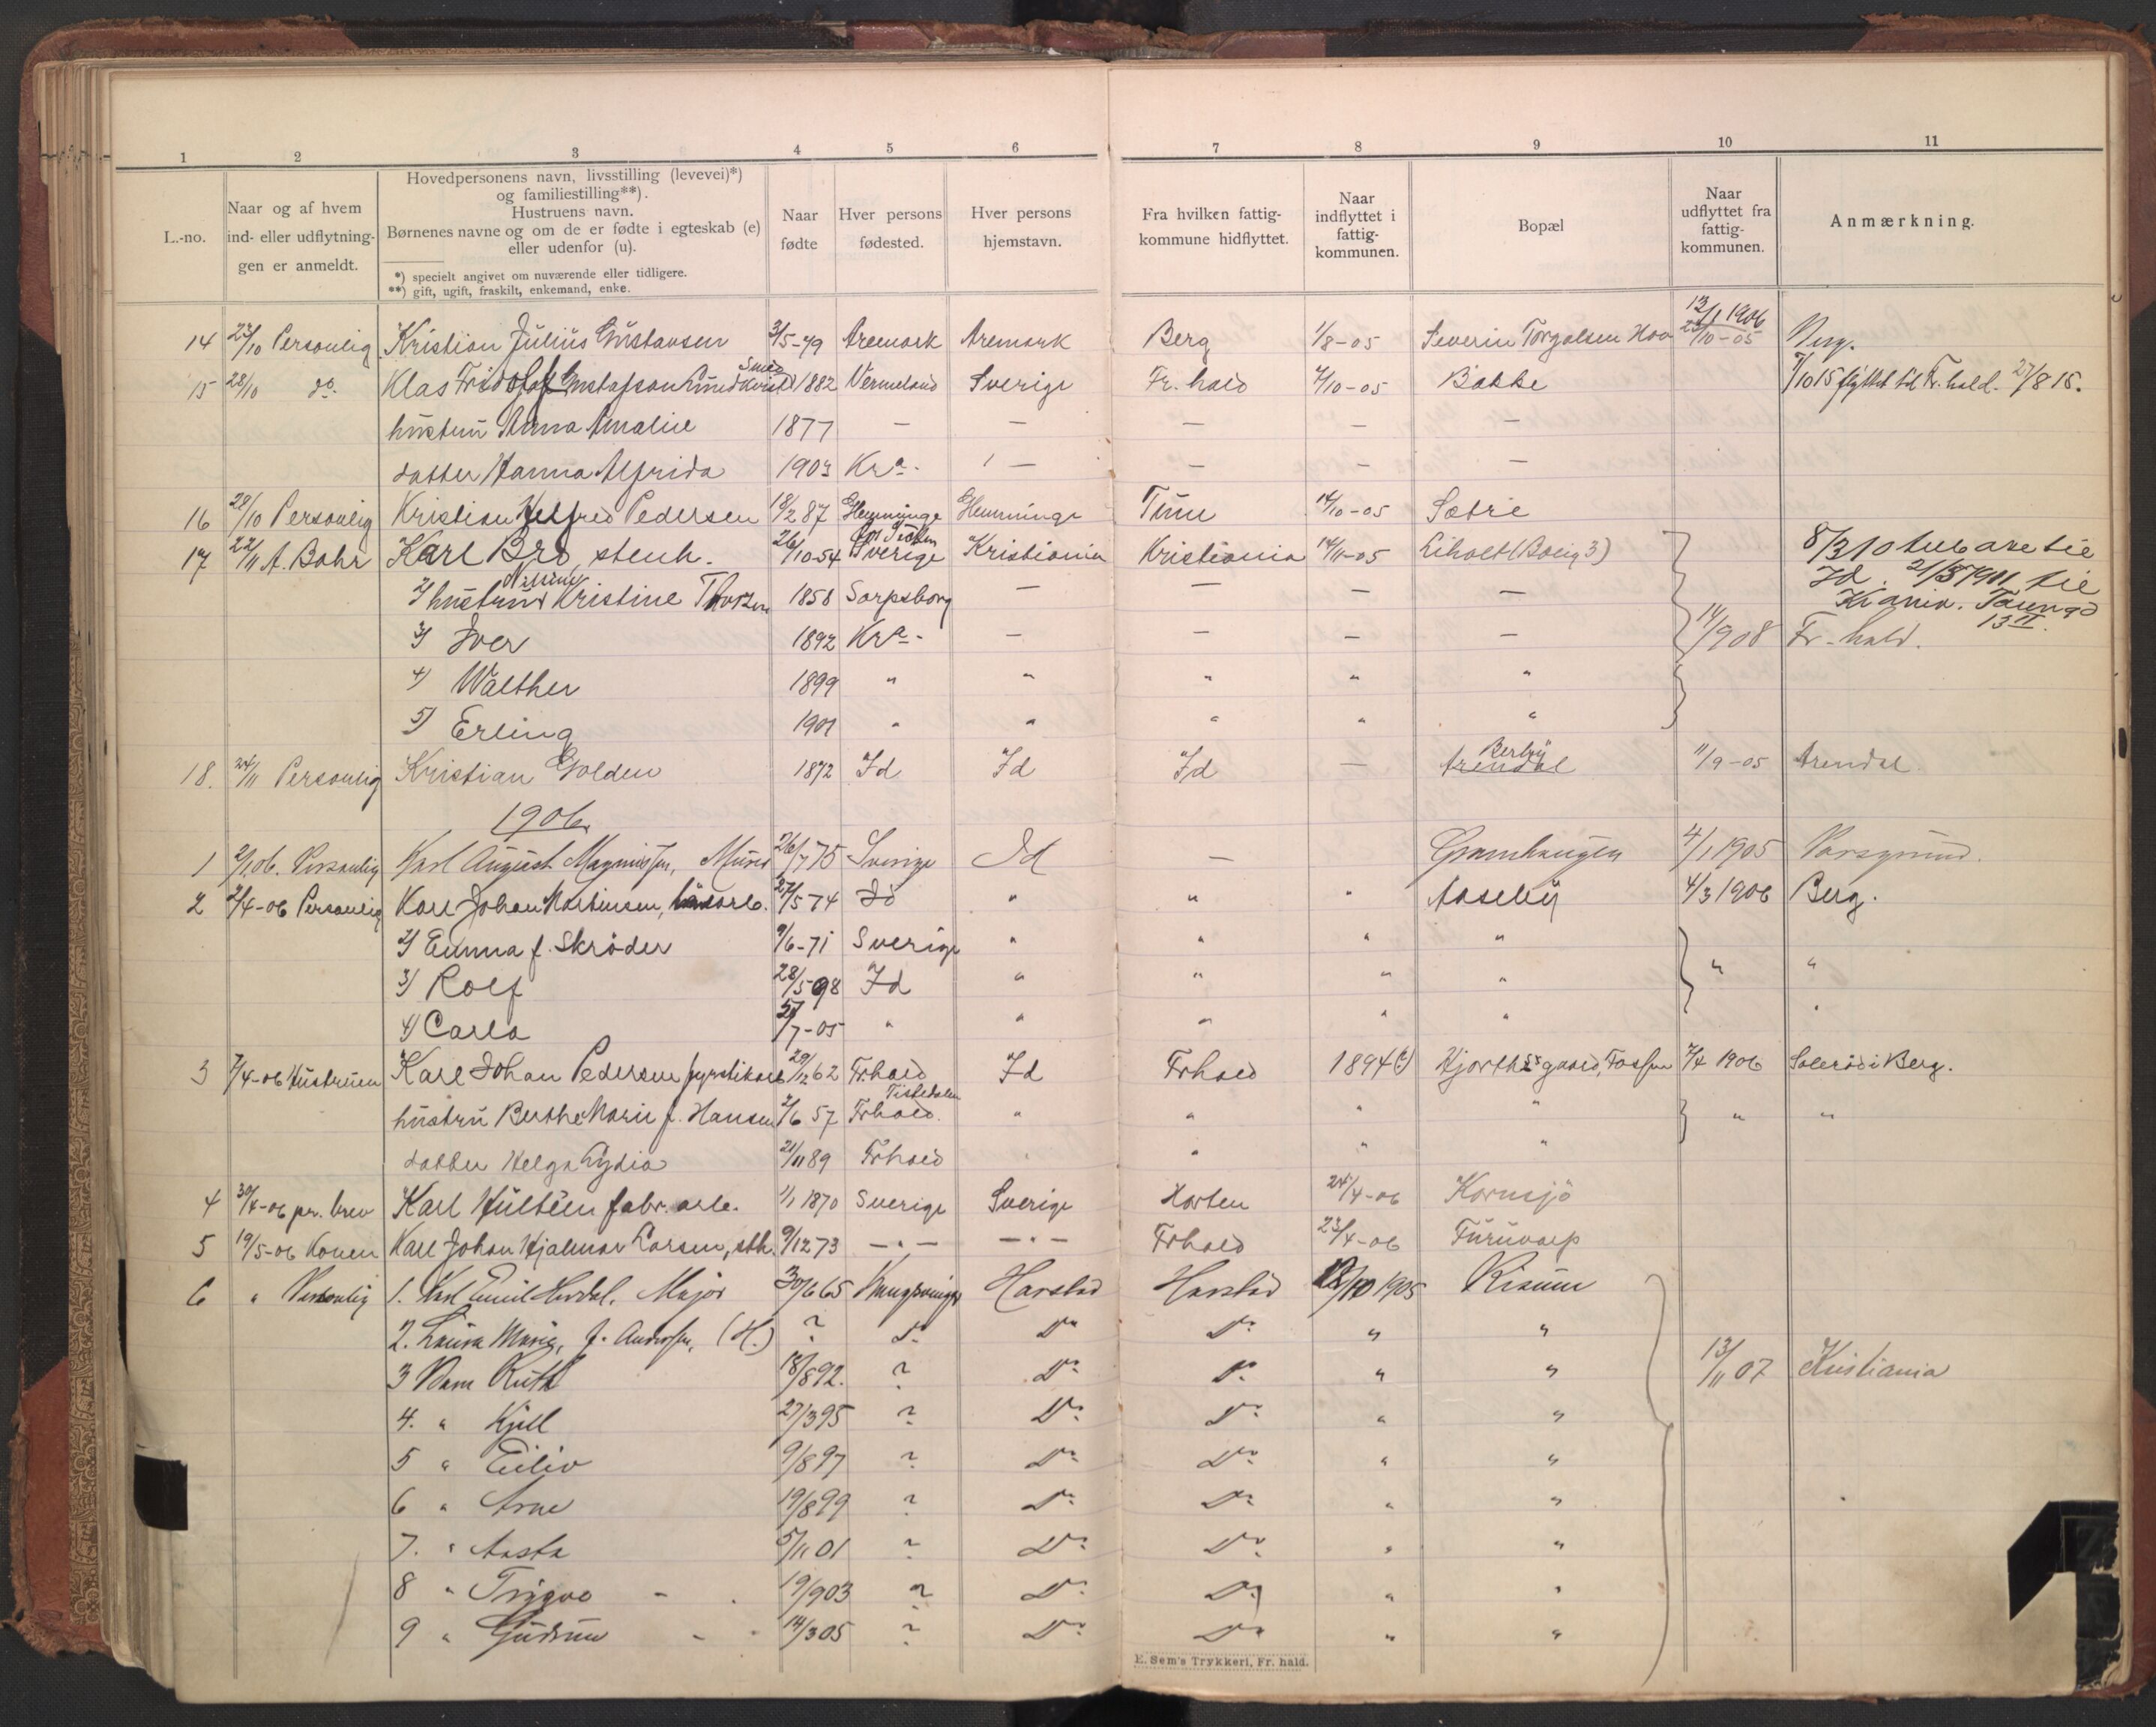 1 2 3 4 5 6 7 8 9 10 11
L.-no.
Naar og af hvem
ind- eller udflytnin-
gen er anmeldt.
Hovedpersonens navn, livsstilling (levevei)*)
og familiestilling**).
Hustruens navn.
Børnenes navne og om de er fødte i egteskab (e)
eller udenfor (u).
*) specielt angivet om nuværende eller tidligere.
**) gift, ugift, fraskilt, enkemand, enke.
Naar
fødte
Hver persons
fødested.
Hver persons
hjemstavn.
Fra hvilken fattig-
kommune hidflyttet.
Naar
indflyttet i
fattig-
kommunen.
Bopæl
Naar
udflyttet fra
fattig-
kommunen.
Anmærkning.
14 23/10 Personlig Kristian Julius Gustavsen 3/5-49 Aremark Aremark Berg 1/8-05 Severin Torgalsen 23/10-05 1906
15 28/10 do. Klas Fridolf Gustafson Lundkvist Smed 1882 Vermeland Sverige Fr.hald 4/10-05 Bakke 7/10 15 flyttet til Fr.hald. 27/8 15.
hustru Anna Amalie 1877 — — — — —
datter Hanna Alfrida 1903 Kra. — — — —
16 28/10 Personlig Kristian Helfred Pedersen 18/2 87 Hemminge Hemminge Tune 14/10-05 Sætre
17 22/11 A. Bohr Karl Bro, stenh. 26/10-54 Sverige Kristiania Kristiania 14/11-05 Liholt (Bolig 3) 8/3 10 tilbake til
Id. 1911 til
2) hustru Kristine Nilsine 1858 Sarpsborg — — — — Kr.ania.
3) Iver 1892 Kra. — — — — 14/9 08 Fr-hald.
4) Walther 1899 " " " " "
5) Erling 1901 " " " " "
18. 24/11 Personlig Kristian Golden 1872 Id Id Id — Arendal Berby 11/9-05 Arendal
1906
1 2/1 06. Personlig Karl August Magnussen, Murer 26/7 75 Sverige Id — Gramhaugen 4/1 1905 Porsgrund.
2 2/4-06 Personlig Karl Johan Martinsen, 27/5 74 Id " " " Aaseby 4/3 1906 Berg.
2) Emma f. Skrøder 9/6-71 Sverige " " " "
3) Rolf 28/5 98 Id " " " " " "
4) Carla 7-05 " " " " " "
3 7/4-06 Hustruen Karl Johan Pedersen fyrstikarb 29/12 62 Fr.hald Id Frhald 1894 (?) Hjorthsgaard, Fossen 7/4 1906 Solerød i Berg.
hustru Berthe Marie f. Hansen 2/6 57 Tistedalen Frhald. " " " " " "
datter Helga Lydia 21/11 89 Frhald " " " "
4 30/4-06 pr. brev Karl Hultén fabr.arb. 1/1 1870 Sverige Sverige Horten 24/4-06 Kornsjø
5 19/5-06 Konen Karl Johan Hjalmar Larsen, sth. 9/12 73 — " — — " — Frhald 23/4-06 Furuvarp
6 " Personlig 1. Karl Emil Lerdal, Major 30/6 65 Kongsvinger Harstad Harstad 12/10 1905 Risum
2. Laura Marie, f. Andersen, (H.) ? Do Do Do " "
3 Barn Ruth 18/8 92. ? Do Do " " 13/11 07 Kristiania
4. " Kjell 27/3 95 ? Do Do " "
5 " Eiliv 9/8 97 ? Do Do " "
6 " Arne 19/8 99 ? Do Do " "
7. " Aasta 5/11 01 ? Do Do " "
8 " Trygve 19/9 03 ? Do Do " "
9 " Gudrun 14/3 05 ? Do Do " "
E. Sem's Trykkeri, Fr. hald.